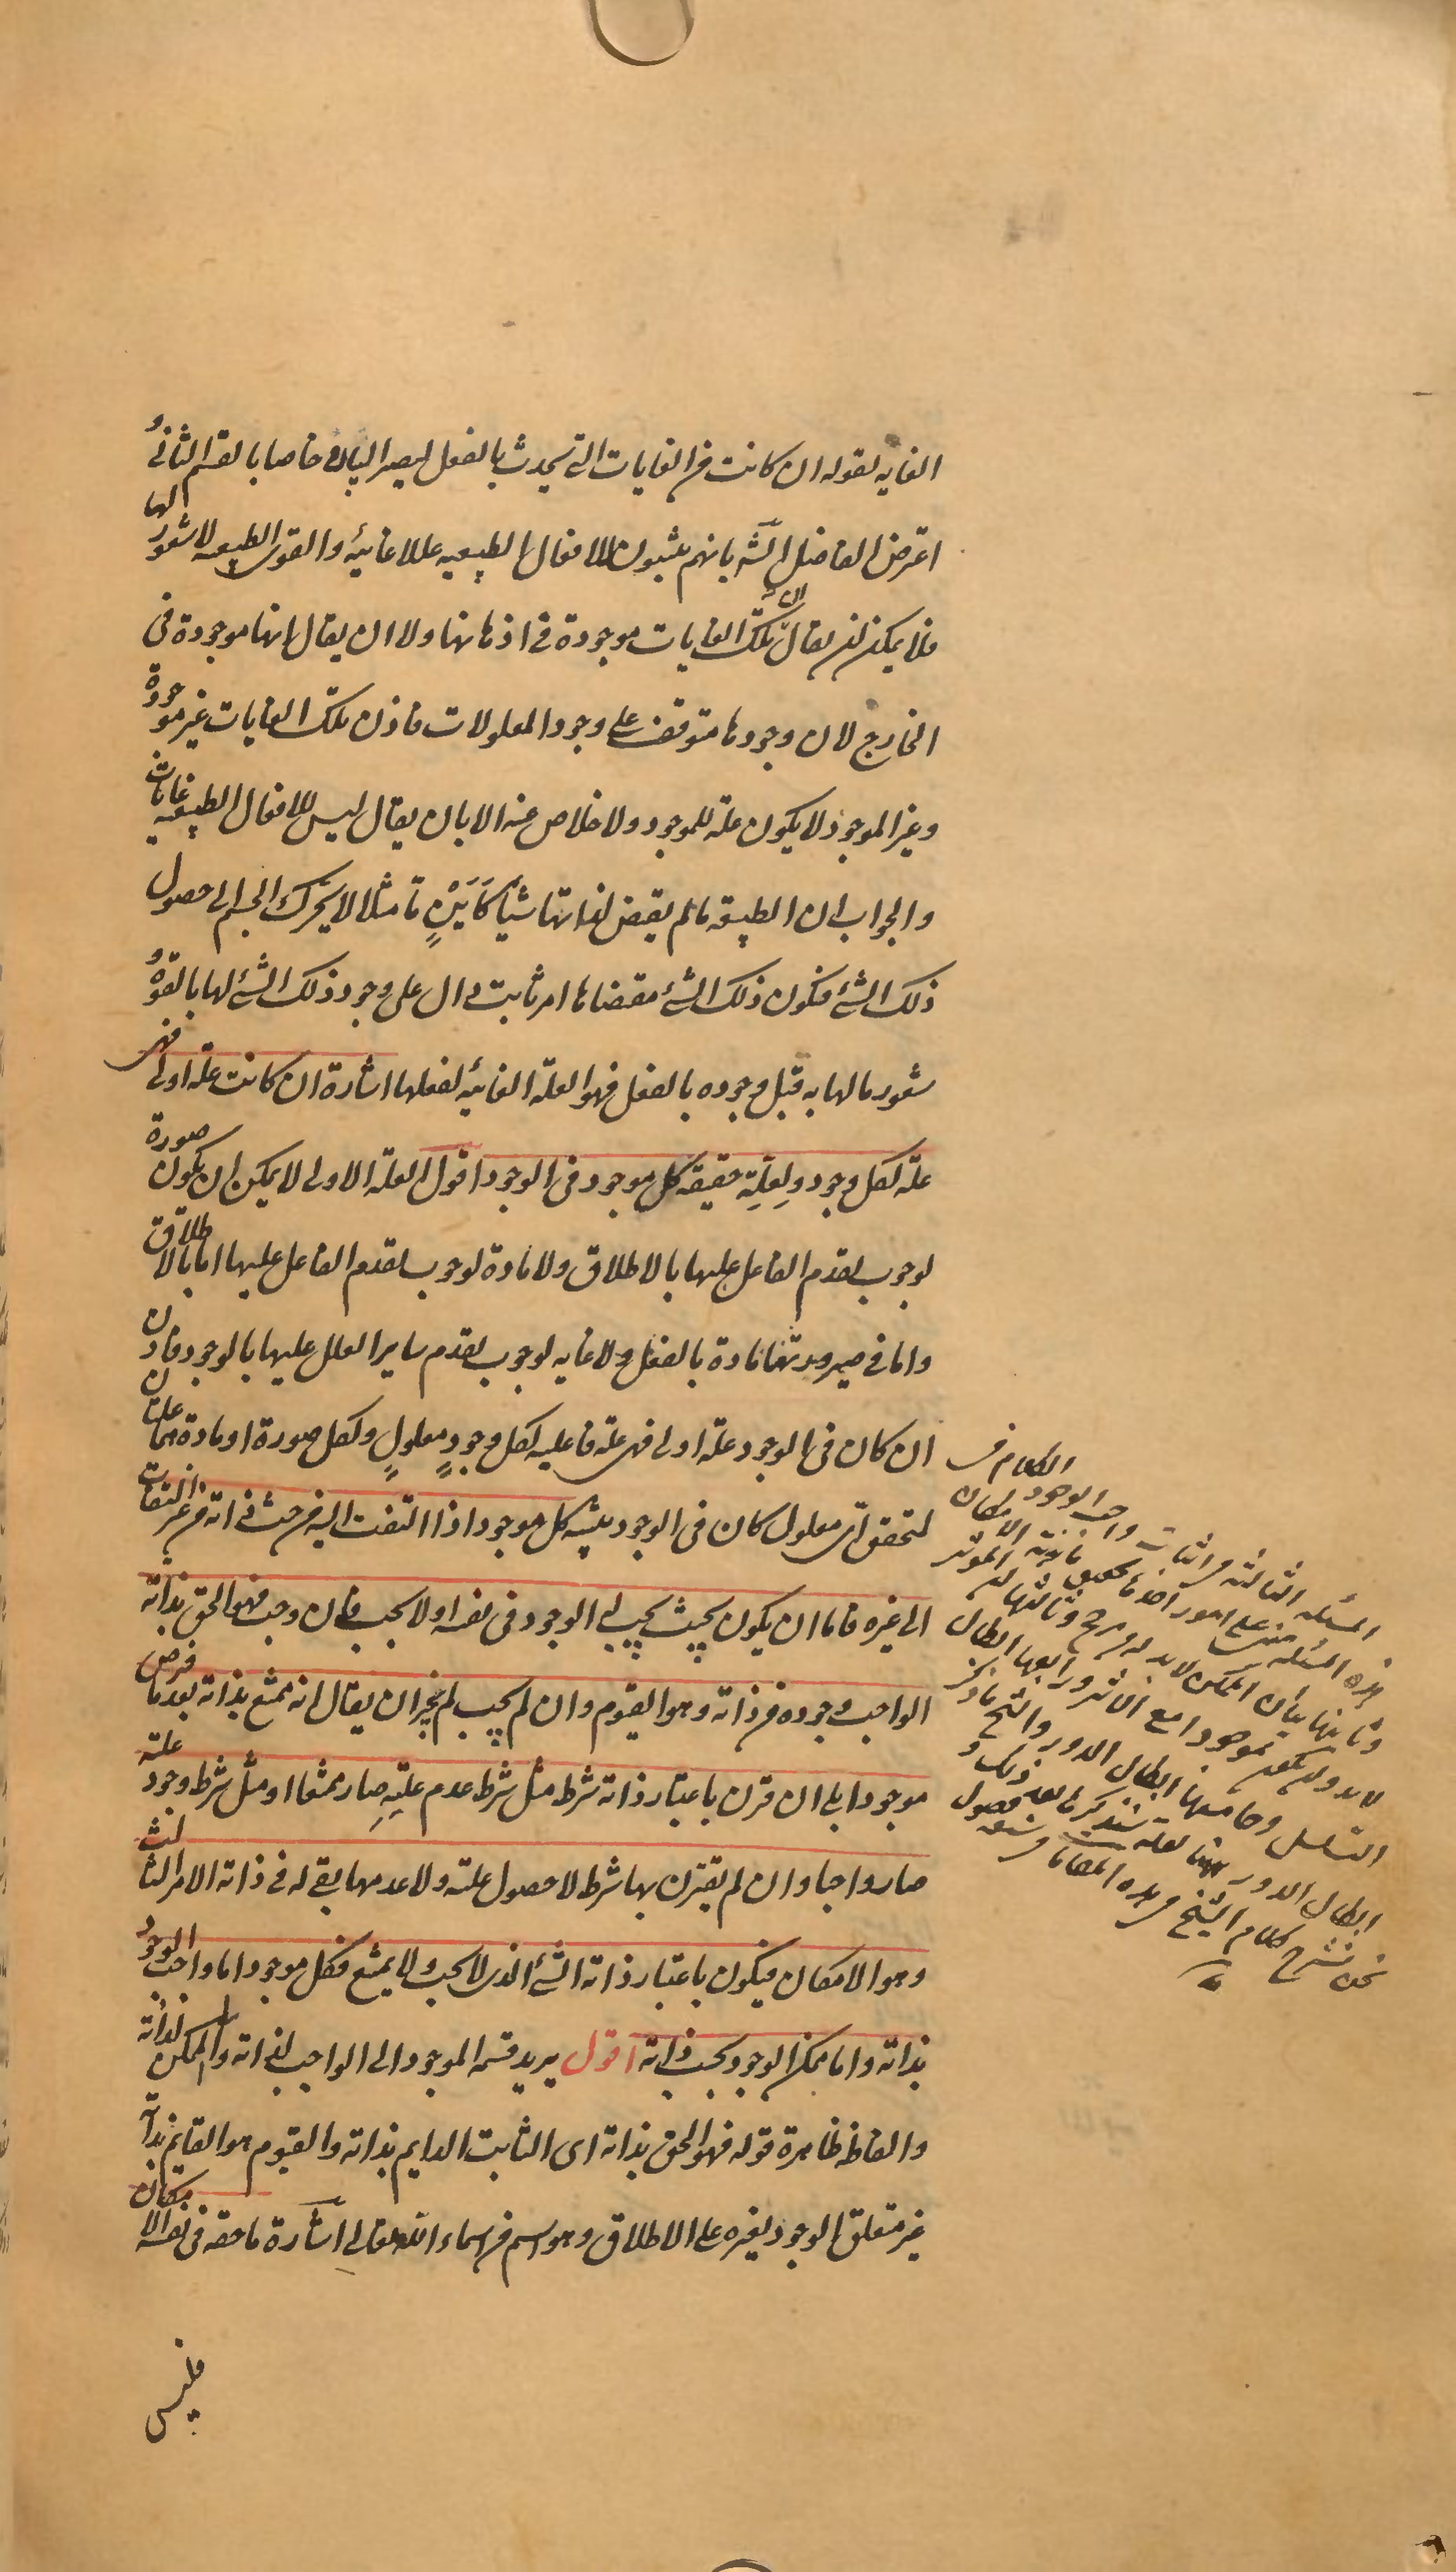 الغاية بقوله ان كانت من الغايات التى تحدث بالفعل ليصير البيان خاصا بالقسم الثانى و
اعترض الفاضل الشّه بانهم يثبتون للافعال الطبيعيه عللا غائيّة والقوى الطبيعيه لا شعور لها
فلا يمكن ان يقال ان تلك الغايات موجودة فى اذهانها ولا ان يقال انها موجودة فى
الخارج لان وجودها متوقف على وجود المعلولات فاذن تلك الغايات غير موجودة
وغير الموجود لا يكون علة للموجود ولا خلاص عنه الا بان يقال ليس للافعال الطبيعيه غايات
والجواب ان الطبيعة مالم يقتض لذاتها شيئا كاَيْنٍ ما مثلا لا يحرك الجسم الى حصول
ذلك الشئ فكون ذلك الشئ مقتضاها امر ثابت دال على وجود ذلك الشئ لها بالقوة و
شعور ما لها به قبل وجوده بالفعل فهو العلة الغائية لفعلها اشارة ان كانت علّة اولى فهى
علة لكل وجود ولِعلّةِ حقيقة كل موجود فى الوجود اقول العلة الاولى لا يمكن ان يكون صورة
لوجوب تقدم الفاعل عليها بالاطلاق ولا مادة لوجوب تقدم الفاعل عليها اما بالاطلاق
واما فى صيرورتها مادة بالفعل ولا غاية لوجوب تقدم ساير العلل عليها بالوجود فاذن
ان كان فى الوجود علة اولى فهى علة فاعلية لكل وجودٍ معلولٍ ولكل صورة او مادة هما علتان
لتحقق اى معلول كان فى الوجود تنبيه كل موجود اذا التفت اليه من حيث ذاته من غير التفات
الى غيره فاما ان يكون بحيث يجب له الوجود فى نفسه او لا يجب فان وجب فهو الحق بذاته
الواجب وجوده من ذاته وهو القيوم وان لم يجب لم يجز ان يقال انه ممتنع بذاته بعد ما فرض
موجودا بلى ان قرن باعتبار ذاته شرط مثل شرط عدم علتِهِ صار ممتنعا او مثل شرط وجود علته
صار واجبا وان لم يقترن بها شرط لا حصول علته ولا عدمها بقى له فى ذاته الامر الثالث
وهو الامكان فيكون باعتبار ذاته الشئ الذى لا يجب ولا يمتنع فكل موجود اما واجب الوجود
بذاته واما ممكن الوجود بحسب ذاته اقول يريد قسمة الموجود الى الواجب لذاته والممكن لذاته
والفاظه ظاهرة قوله فهو الحق بذاته اى الثابت الدايم بذاته والقيوم هو القايم بذاته
غير متعلق الوجود بغيره على الاطلاق وهو اسم من اسماء الله تعالى اشارة ما حقه فى نفسه الامكان
فليس
الكلام فى
المسئلة الثالثة فى اثبات واجب الوجود
هذه المسئلة مبنية على امور احدها تحقيق ماهية الامكان
وثانيها بيان ان الممكن لابد له من مرجح وثالثها ان المؤثر
لابد وان يكون موجودا مع الاثر ورابعها ابطال
التسلسل وخامسها ابطال الدور والشيخ ما ذكر
ابطال الدور ههنا لعله سنذكرها بعد ذلك و
نحن نشرح كلام الشيخ فى هذه المقامات فى فصول